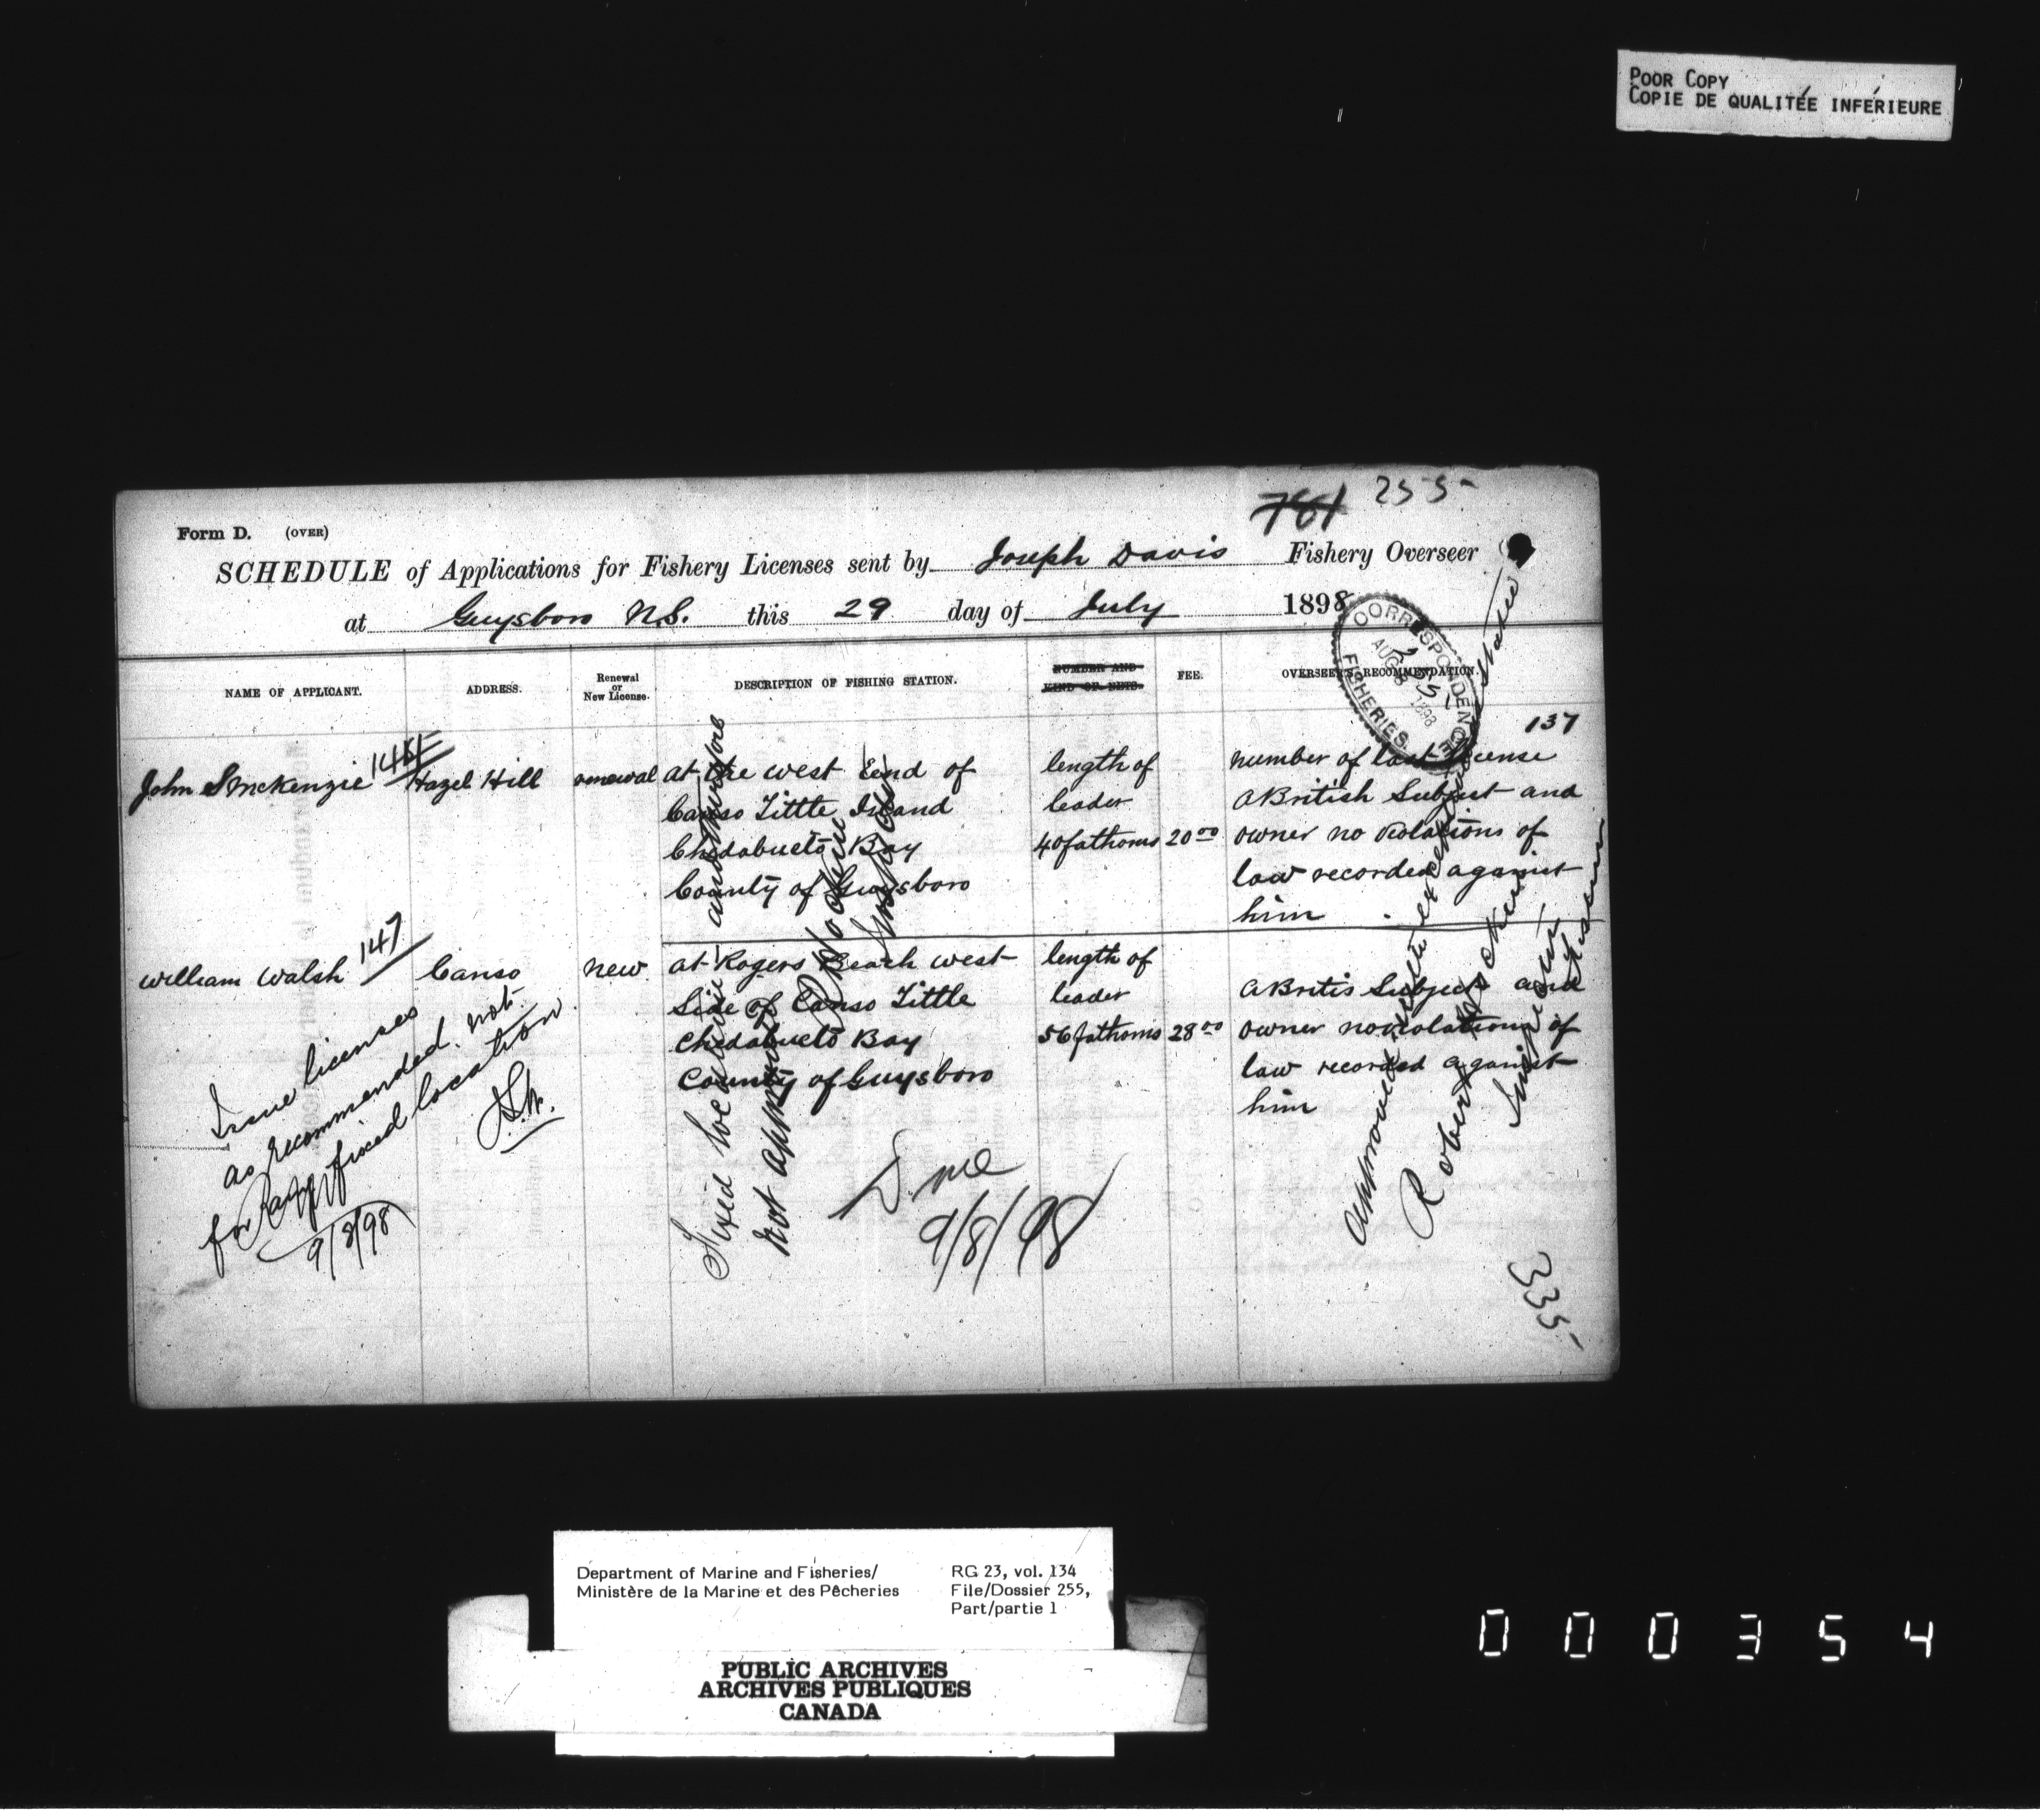 POOR COPY
COPIE DE QUALITÉE INFÉRIEURE
781 255
Form D. (OVER)
SCHEDULE of Applications for Fishery Licenses sent by Joseph Davis Fishery Overseer
at Guysboro N.S. this 29 day of July 1898
CORRESPONDENCE
AUG 8 1898
255
FISHERIES.
NAME OF APPLICANT. ADDRESS. Renewal or New License. DESCRIPTION OF FISHING STATION. NUMBER AND KIND OF NETS. FEE. OVERSEER'S RECOMMENDATION.
137
John S McKenzie 146 Hazel Hill renewal at the west End of length of number of last license
Canso Tittle Island leader a British Subject and
Chedabucto Bay 40 fathoms 20 00 owner no violations of
County of Guysboro law recorded against
him
William Walsh 147 Canso new at Rogers Beach west length of
Side of Canso Tittle leader a Britis Subject and
Chedabucto Bay 56 fathoms 28 00 owner no violations of
County of Guysboro law recorded against
him
Issue licenses
as recommended. not
for fixed location
9/8/98
Fixed location and therefore
not approved
Joseph Davis
Done
9/8/98
approved
Robert Hockin
Inspector
335
Department of Marine and Fisheries/
Ministère de la Marine et des Pêcheries
RG 23, vol. 134
File/Dossier 255,
Part/partie 1
PUBLIC ARCHIVES
ARCHIVES PUBLIQUES
CANADA
000354